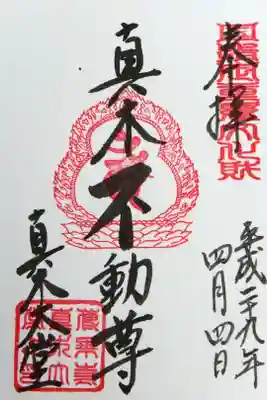 奉拝
平成二十九年
四月四日
真木不動尊
真木大堂